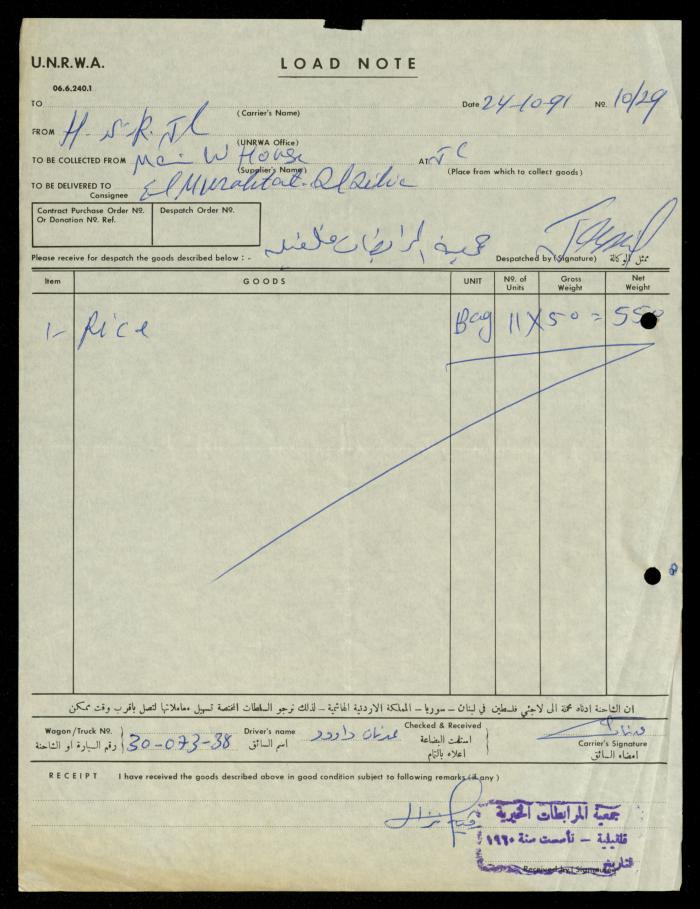 U.N.R.W.A.
LOAD NOTE
06.6.240.1
TO
(Carrier's Name)
Date 24-10-91 Nº. 10/29
FROM
(UNRWA Office)
TO BE COLLECTED FROM Main W House
(Supplier's Name)
AT
(Place from which to collect goods)
TO BE DELIVERED TO
Consignee
Contract Purchase Order Nº.
Or Donation Nº. Ref.
Despatch Order Nº.
جمعية المرابطات قلقيلية
Please receive for despatch the goods described below : -
Despatched by (Signature)
ممثل الوكالة
Item GOODS UNIT Nº. of Units Gross Weight Net Weight
1- Rice Bag 11 X 50 = 550
ان الشاحنة ادناه محملة الى لاجئي فلسطين في لبنان – سوريا – المملكة الاردنية الهاشمية – لذلك نرجو السلطات المختصة تسهيل معاملاتها لتصل باقرب وقت ممكن
Wagon/Truck Nº.
رقم السيارة او الشاحنة
30-073-38
Driver's name
اسم السائق
عدنان داوود
Checked & Received
استلمت البضاعة
اعلاه بالتمام
عدنان
Carrier's Signature
امضاء السائق
RECEIPT I have received the goods described above in good condition subject to following remarks (if any)
جمعية المرابطات الخيرية
قلقيلية – تأسست سنة ١٩٦٠
التاريخ
Received by (Signature)